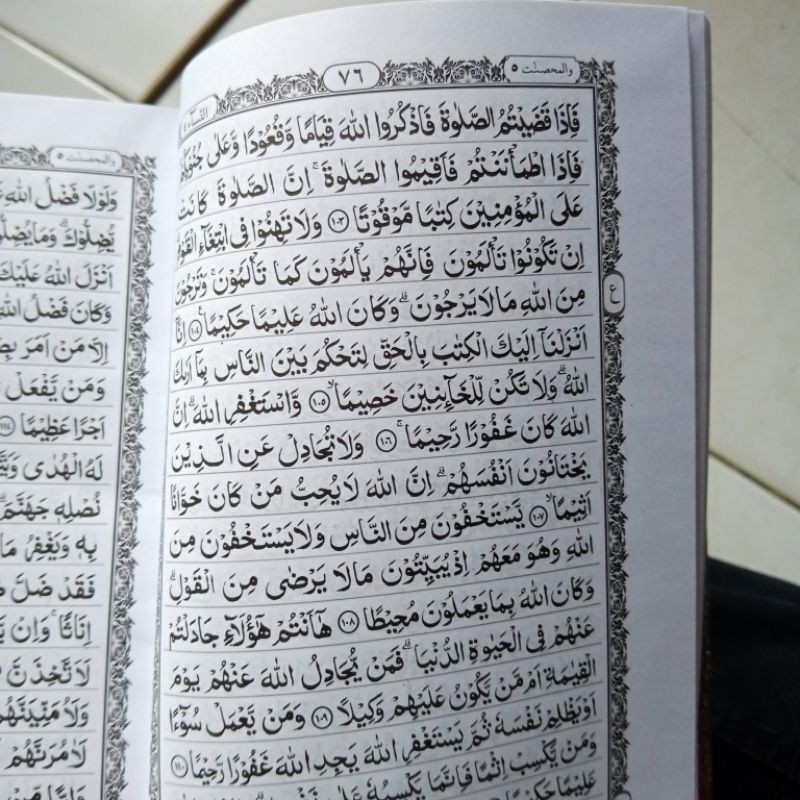 والمحصنت ٥
٧٦
النساء ٤
فَاِذَا قَضَيْتُمُ الصَّلٰوةَ فَاذْكُرُوا اللّٰهَ قِيَامًا وَّقُعُوْدًا وَّعَلٰى جُنُوْبِكُمْ
فَاِذَا اطْمَأْنَنْتُمْ فَاَقِيْمُوا الصَّلٰوةَ ۚ اِنَّ الصَّلٰوةَ كَانَتْ
عَلَى الْمُؤْمِنِيْنَ كِتٰبًا مَّوْقُوْتًا ١٠٣ وَلَا تَهِنُوْا فِى ابْتِغَاۤءِ الْقَوْمِ
اِنْ تَكُوْنُوْا تَأْلَمُوْنَ فَاِنَّهُمْ يَأْلَمُوْنَ كَمَا تَأْلَمُوْنَ ۚ وَتَرْجُوْنَ
مِنَ اللّٰهِ مَا لَا يَرْجُوْنَ ۗ وَكَانَ اللّٰهُ عَلِيْمًا حَكِيْمًا ١٠٤ اِنَّآ
اَنْزَلْنَآ اِلَيْكَ الْكِتٰبَ بِالْحَقِّ لِتَحْكُمَ بَيْنَ النَّاسِ بِمَآ اَرٰىكَ
اللّٰهُ ۗ وَلَا تَكُنْ لِّلْخَاۤىِٕنِيْنَ خَصِيْمًا ۙ ١٠٥ وَّاسْتَغْفِرِ اللّٰهَ ۗ اِنَّ
اللّٰهَ كَانَ غَفُوْرًا رَّحِيْمًا ۚ ١٠٦ وَلَا تُجَادِلْ عَنِ الَّذِيْنَ
يَخْتَانُوْنَ اَنْفُسَهُمْ ۗ اِنَّ اللّٰهَ لَا يُحِبُّ مَنْ كَانَ خَوَّانًا
اَثِيْمًا ۙ ١٠٧ يَّسْتَخْفُوْنَ مِنَ النَّاسِ وَلَا يَسْتَخْفُوْنَ مِنَ
اللّٰهِ وَهُوَ مَعَهُمْ اِذْ يُبَيِّتُوْنَ مَا لَا يَرْضٰى مِنَ الْقَوْلِ ۗ
وَكَانَ اللّٰهُ بِمَا يَعْمَلُوْنَ مُحِيْطًا ١٠٨ هٰٓاَنْتُمْ هٰٓؤُلَاۤءِ جَادَلْتُمْ
عَنْهُمْ فِى الْحَيٰوةِ الدُّنْيَا ۗ فَمَنْ يُّجَادِلُ اللّٰهَ عَنْهُمْ يَوْمَ
الْقِيٰمَةِ اَمْ مَّنْ يَّكُوْنُ عَلَيْهِمْ وَكِيْلًا ١٠٩ وَمَنْ يَّعْمَلْ سُوْۤءًا
اَوْ يَظْلِمْ نَفْسَهٗ ثُمَّ يَسْتَغْفِرِ اللّٰهَ يَجِدِ اللّٰهَ غَفُوْرًا رَّحِيْمًا ١١٠
وَمَنْ يَّكْسِبْ اِثْمًا فَاِنَّمَا يَكْسِبُهٗ عَلٰى نَفْسِهٖ
عَلِيْمًا حَكِيْمًا
ع
والمحصنت ٥
وَلَوْلَا فَضْلُ اللّٰهِ
يُّضِلُّوْكَ ۗ وَمَا يُضِلُّوْنَ
اَنْزَلَ اللّٰهُ عَلَيْكَ
وَكَانَ فَضْلُ اللّٰهِ
اِلَّا مَنْ اَمَرَ
وَمَنْ يَّفْعَلْ
اَجْرًا عَظِيْمًا ١١٤
لَهُ الْهُدٰى
نُصْلِهٖ جَهَنَّمَ
بِهٖ وَيَغْفِرُ مَا
فَقَدْ ضَلَّ
اِنٰثًا ۚ وَاِنْ
لَاَتَّخِذَنَّ
وَلَاُمَنِّيَنَّهُمْ
لَاٰمُرَنَّهُمْ